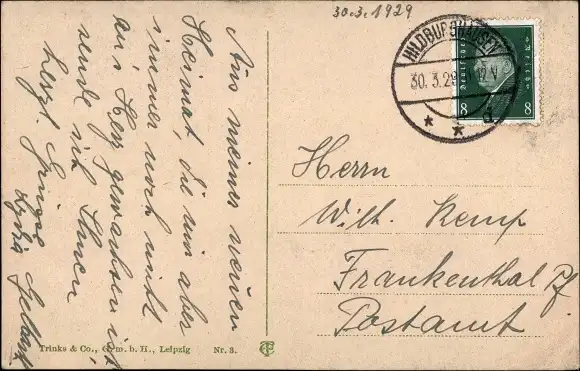 30.3.1929
HILDBURGHAUSEN
30.3.29. 12 V
d
8 8
Aus meiner neuen
Heimat, die mir aber
immer noch nicht
an's Herz gewachsen ist
sende ich Ihnen
herzl. Grüsse
Herrn
Wilh. Kemp
Frankenthal Pf.
Postamt
Trinks & Co., G. m. b. H., Leipzig Nr. 3.